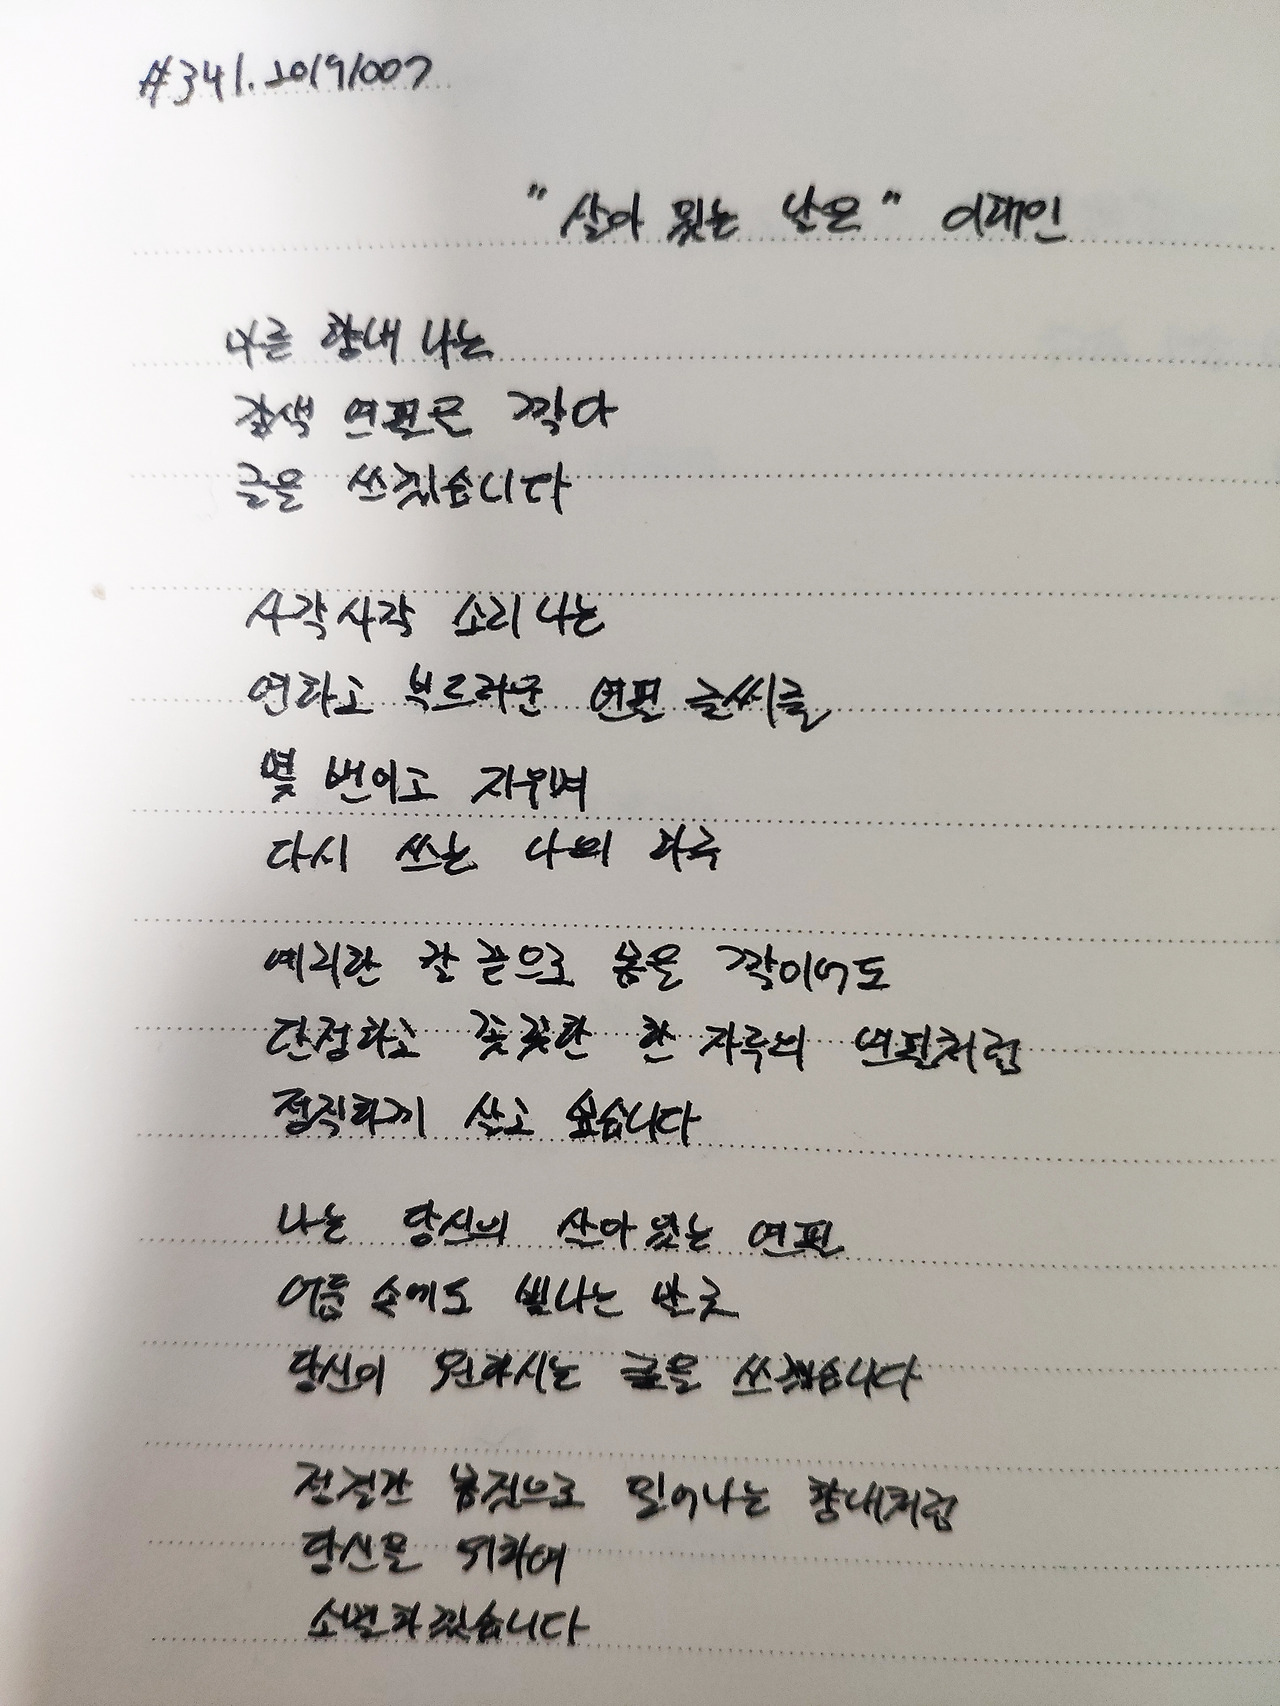 #341. 20191007
"살아 있는 날은" 이해인
마른 향내 나는
갈색 연필을 깎아
글을 쓰겠습니다
사각사각 소리나는
연하고 부드러운 연필 글씨를
몇 번이고 지우며
다시 쓰는 나의 하루
예리한 칼 끝으로 몸을 깎이어도
단정하고 꼿꼿한 한 자루의 연필처럼
정직하게 살고 싶습니다
나는 당신의 살아 있는 연필
어둠 속에도 빛나는 말로
당신이 원하시는 글을 쓰겠습니다
정결한 몸짓으로 일어나는 향내처럼
당신을 위하여
소멸하겠습니다